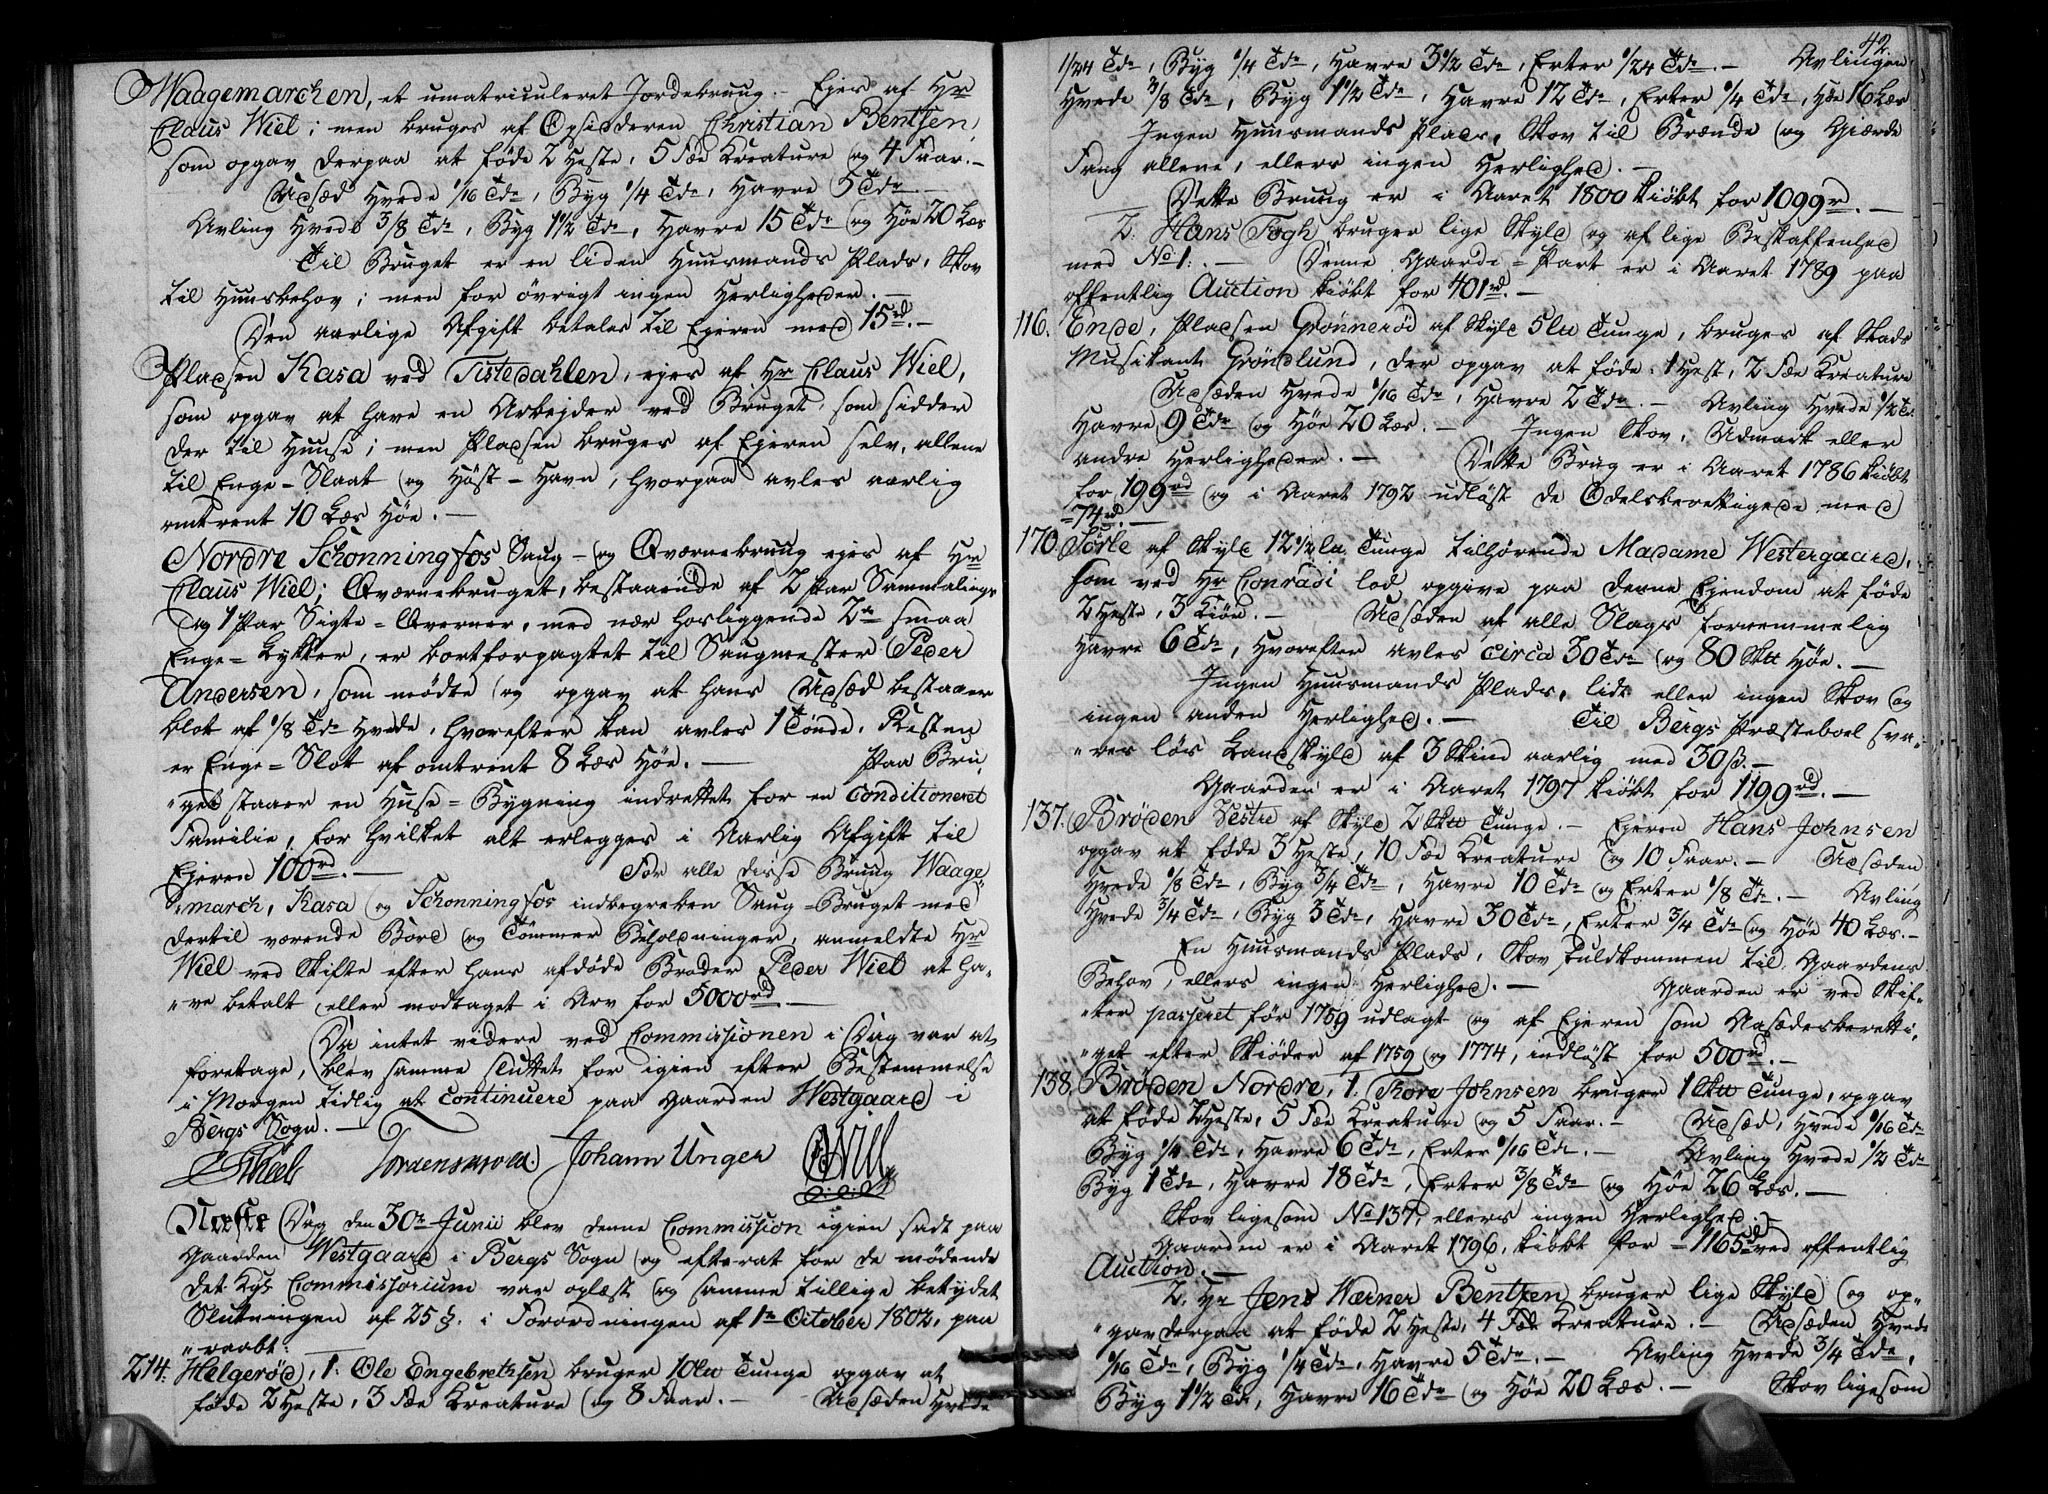 Waagemarchen, et umatriculeret Jordebruug. – Ejes af Hr
Claus Wiel; men bruges af Opsidderen Christian Bentsen,
som opgav derpaa at føde 2 Heste, 5 Fæe Kreature og 4 Faar. –
Udsæd Hvede 1/16 Tdr, Byg 1/4 Tdr, Havre 5 Tdr –
Avling Hvede 3/8 Tdr, Byg 1 1/2 Tdr, Havre 15 Tdr og Høe 20 Læs
Til Bruget er en liden Huusmands Plads, Skov
til Huusbehov; men for øvrigt ingen Herligheder. –
Den aarlige Afgift betales til Ejeren med 15 rd. –
Pladsen Kasa ved Tistedahlen, ejes af Hr Claus Wiel,
som opgav at have en Arbejder ved Bruget, som sidder
der til Huuse; men Pladsen bruges af Ejeren selv, allene
til Enge-Slaat og Høst-Havn, hvorpaa avles aarlig
omtrent 10 Læs Høe. –
Nordre Schonningfos Saug- og Qværnebruug ejes af Hr
Claus Wiel; Qværnebruget, bestaaende af 2 Par Sammalings
og 1 Par Sigte-Qverner, med nær hosliggende 2de smaa
Enge-Løkker, er bortforpagtet til Saugmester Peder
Andersen, som mødte og opgav at hans Udsæd bestaaer
blot af 1/8 Tdr Hvede, hvorefter kan avles 1 Tønde, Resten
er Enge-Slot af omtrent 8 Læs Høe. – Paa Bru,,
,,get staaer en Huse-Bygning indrettet for en conditioneret
Familie, for hvilket alt erlegges i Aarlig Afgift til
Ejeren 100 rd. – For alle disse Bruug Waage,,
,,march, Kasa og Schonningfos indbegreben Saug-Bruget med
dertil værende Bord og Tømmer Beholdninger, anmeldte Hr
Wiel ved Skifte efter hans afdøde Broder Peder Wiel at ha,,
,,ve betalt eller modtaget i Arv for 5000 rd. –
Da intet videre ved Commissionen i Dag var at
foretage, blev samme sluttet for igien efter Bestemmelse
i Morgen tidlig at continuere paa Gaarden Westgaard i
Bergs Sogn. –
Johann Unger
Næste Dag den 30te Junii blev denne Commission igien sadt paa
Gaarden Westgaard i Bergs Sogn og efterat for de mødende
det Kgs Commissorium var oplæst og samme tillige betydet
Slutningen af 25 §. i Forordningen af 1te October 1802, paa
,,raabt:
214. Helgerød, 1. Ole Engebrethsen bruger 10 lu Tunge opgav at
føde 2 Heste, 3 Fæe Kreature og 8 Faar. – Udsæden Hvede
42.
1/24 Tdr, Byg 1/4 Tdr, Havre 3 1/2 Tdr, Erter 1/24 Tdr. – Avlingen
Hvede 3/8 Tdr, Byg 1 1/2 Tdr, Havre 12 Tdr, Erter 1/4 Tdr, Høe 16 Læs
Ingen Huusmands Plads, Skov til Brænde og Gjærde
Fang allene, ellers ingen Herlighed. –
Dette Bruug er i Aaret 1800 kiøbt for 1099 rd. –
2. Hans Fogh bruger lige Skyld og af lige Beskaffenhed
med No 1. – Denne Gaarde-Part er i Aaret 1789 paa
offentlig Auction kiøbt for 401 rd. –
116. Ende, Pladsen Grønnerød af Skyld 5 lu Tunge, bruges af Stads
Musikant Grøndlund, der opgav at føde 1 Hest, 2 Fæe Kreature
Udsæden Hvede 1/16 Tdr, Havre 2 Tdr. – Avling Hvede 1/2 Td.
Havre 9 Tdr og Høe 20 Læs. – Ingen Skov, Udmark eller
andre Herligheder. – Dette Brug er i Aaret 1786 kiøbt
for 199 rd og i Aaret 1792 udløst de Odelsberettigede med
=74 rd. –
170. Sørle af Skyld 12 1/2 lu. Tunge tilhørende Madame Westergaard,
som ved Hr Conradi lod opgive paa denne Ejendom at føde
2 Heste, 3 Kiør. – Udsæden af alle Slags fornemmelig
Havre 6 Tdr, hvorefter avles circa 30 Tdr og 80 Skt Høe. –
Ingen Huusmands Plads, lidt eller ingen Skov og
ingen anden Herlighed. – Til Bergs Præsteboel sva,,
,,res løs Landskyld af 3 Skind aarlig med 30 ß. –
Gaarden er i Aaret 1797 kiøbt for 1199 rd. –
137. Brøden Vestre af Skyld 2 Sktt Tunge. – Ejeren Hans Johnsen
opgav at føde 3 Heste, 10 Fæe Kreature og 10 Faar. – Udsæden
Hvede 1/8 Tdr, Byg 3/4 Tdr, Havre 10 Tdr og Erter 1/8 Td. – Avling
Hvede 3/4 Tdr, Byg 3 Tdr, Havre 30 Tdr, Erter 3/4 Tdr og Høe 40 Læs. –
En Huusmands Plads, Skov fuldkommen til Gaardens
Behov, ellers ingen Herlighed. – Gaarden er ved Skif,,
,,ter passeret før 1759 udlagt og af Ejeren som Aasædesberetti,,
,,get efter Skiøder af 1759 og 1774, indløst for 500 rd. –
138. Brøden Nordre, 1. Thore Johnsen bruger 1 Sktt Tunge, opgav
at føde 2 Heste, 5 Fæe Kreature og 5 Faar. – Udsæd, Hvede 1/16 Td
Byg 1/4 Td, Havre 6 Tdr, Erter 1/16 Tdr. – Avling Hvede 1/2 Tdr
Byg 1 Tdr, Havre 18 Tdr, Erter 3/8 Tdr og Høe 26 Læs. –
Skov ligesom No 137, ellers ingen Herlighed. –
Gaarden er i Aaret 1796, kiøbt for =1165 rd ved offentlig
Auction. –
2. Hr Jens Wærner Bentzen bruger lige Skyld og op,,
,,gav derpaa at føde 2 Heste, 4 Fæe Kreature. – Udsæden Hvede
1/16 Tdr, Byg 1/4 Tdr, Havre 5 Tdr. – Avling Hvede 3/4 Tdr,
Byg 1 1/2 Td, Havre 16 Tdr og Høe 20 Læs. – Skov ligesom